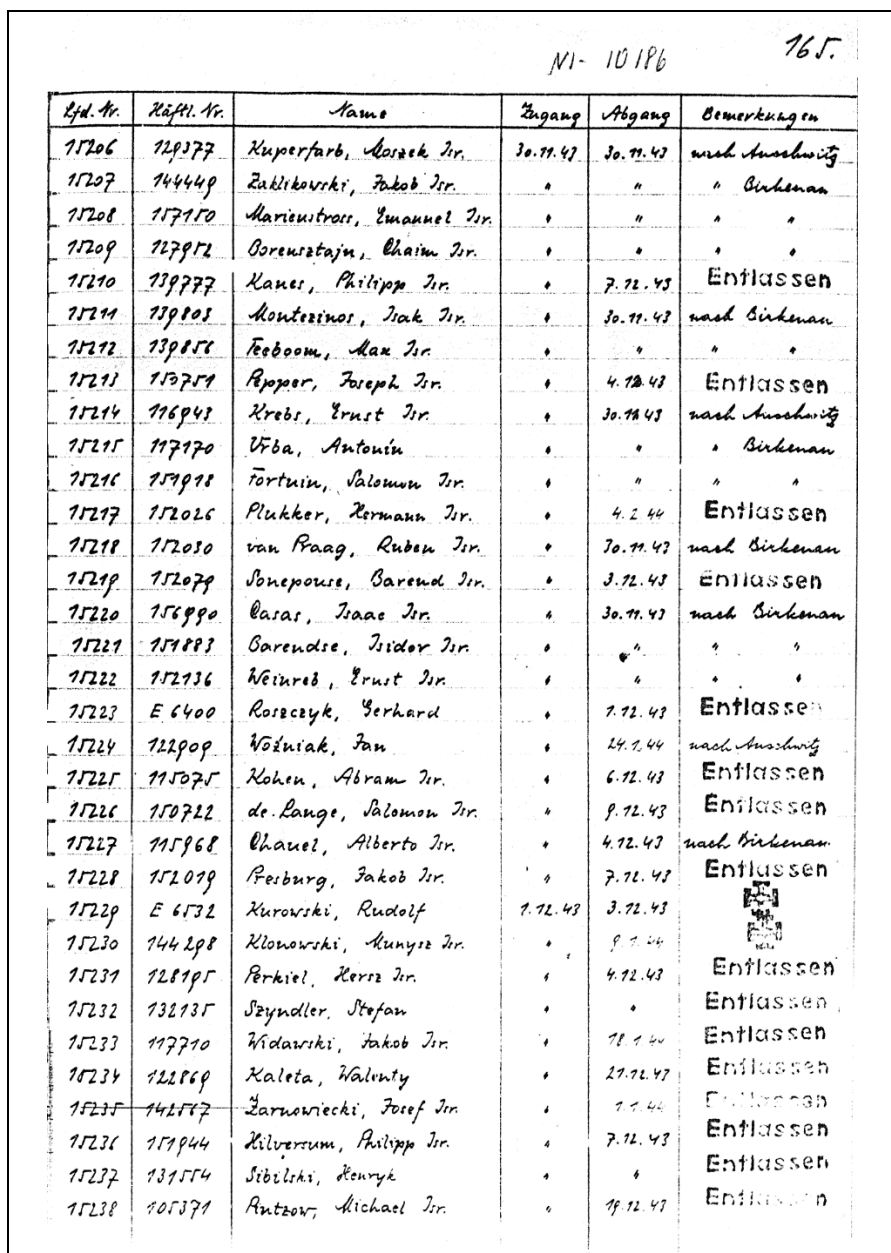 165.
NI- 10186
Lfd. Nr. Häftl. Nr. Name Zugang Abgang Bemerkungen
15206 129377 Kuperfarb, Moszek Isr. 30.11.43 30.11.43 nach Auschwitz
15207 144449 Zaklikowski, Jakob Isr. " " " Birkenau
15208 157150 Marienstrass, Emanuel Isr. " " " "
15209 127952 Borensztajn, Chaim Isr. " " " "
15210 139777 Kanes, Philipp Isr. " 7.12.43 Entlassen
15211 139803 Montezinos, Isak Isr. " 30.11.43 nach Birkenau
15212 139856 Teeboom, Max Isr. " " " "
15213 150751 Pepper, Joseph Isr. " 4.12.43 Entlassen
15214 116943 Krebs, Ernst Isr. " 30.11.43 nach Auschwitz
15215 117170 Vrba, Antonín " " " Birkenau
15216 151918 Fortuin, Salomon Isr. " " " "
15217 152026 Plukker, Hermann Isr. " 4.2.44 Entlassen
15218 152030 van Praag, Ruben Isr. " 30.11.43 nach Birkenau
15219 152079 Sonepouse, Barend Isr. " 3.12.43 Entlassen
15220 156990 Casas, Isaac Isr. " 30.11.43 nach Birkenau
15221 151883 Barendse, Isidor Isr. " " " "
15222 152136 Weinreb, Ernst Isr. " " " "
15223 E 6400 Roszczyk, Gerhard " 1.12.43 Entlassen
15224 122909 Woźniak, Jan " 24.1.44 nach Auschwitz
15225 115075 Kohen, Abram Isr. " 6.12.43 Entlassen
15226 150722 de Lange, Salomon Isr. " 9.12.43 Entlassen
15227 115968 Chanel, Alberto Isr. " 4.12.43 nach Birkenau
15228 152019 Presburg, Jakob Isr. " 7.12.43 Entlassen
15229 E 6532 Kurowski, Rudolf 1.12.43 3.12.43
15230 144298 Klonowski, Munysz Isr. " 9.1.44
15231 128195 Perkiel, Hersz Isr. " 4.12.43 Entlassen
15232 132135 Szyndler, Stefan " " Entlassen
15233 117710 Widawski, Jakob Isr. " 18.1.44 Entlassen
15234 122869 Kaleta, Walenty " 21.12.43 Entlassen
15235 142567 Żarnowiecki, Josef Isr. " 1.1.44 Entlassen
15236 151944 Hilversum, Philipp Isr. " 7.12.43 Entlassen
15237 131554 Sibilski, Henryk " " Entlassen
15238 105371 Antzow, Michael Isr. " 19.12.43 Entlassen